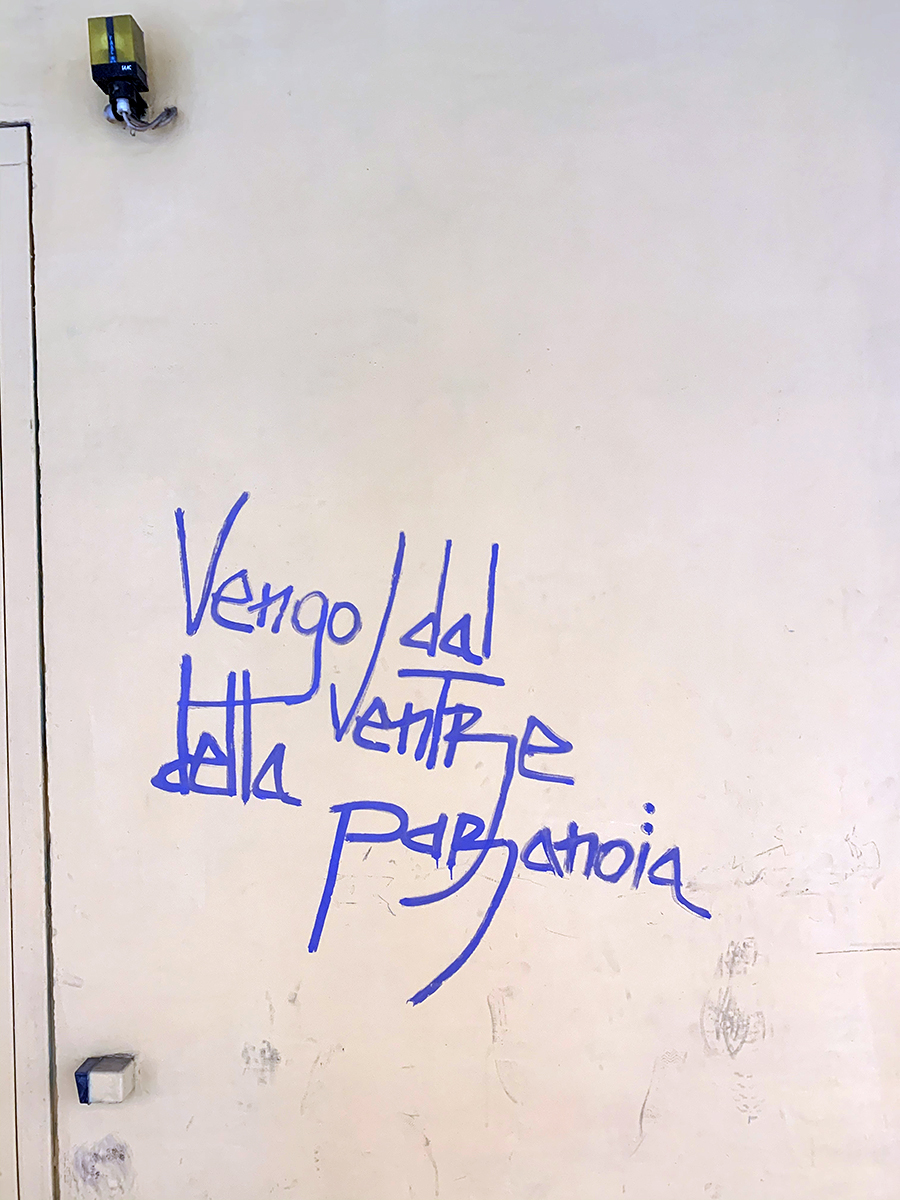 Vengo dal
ventre
della
paranoia